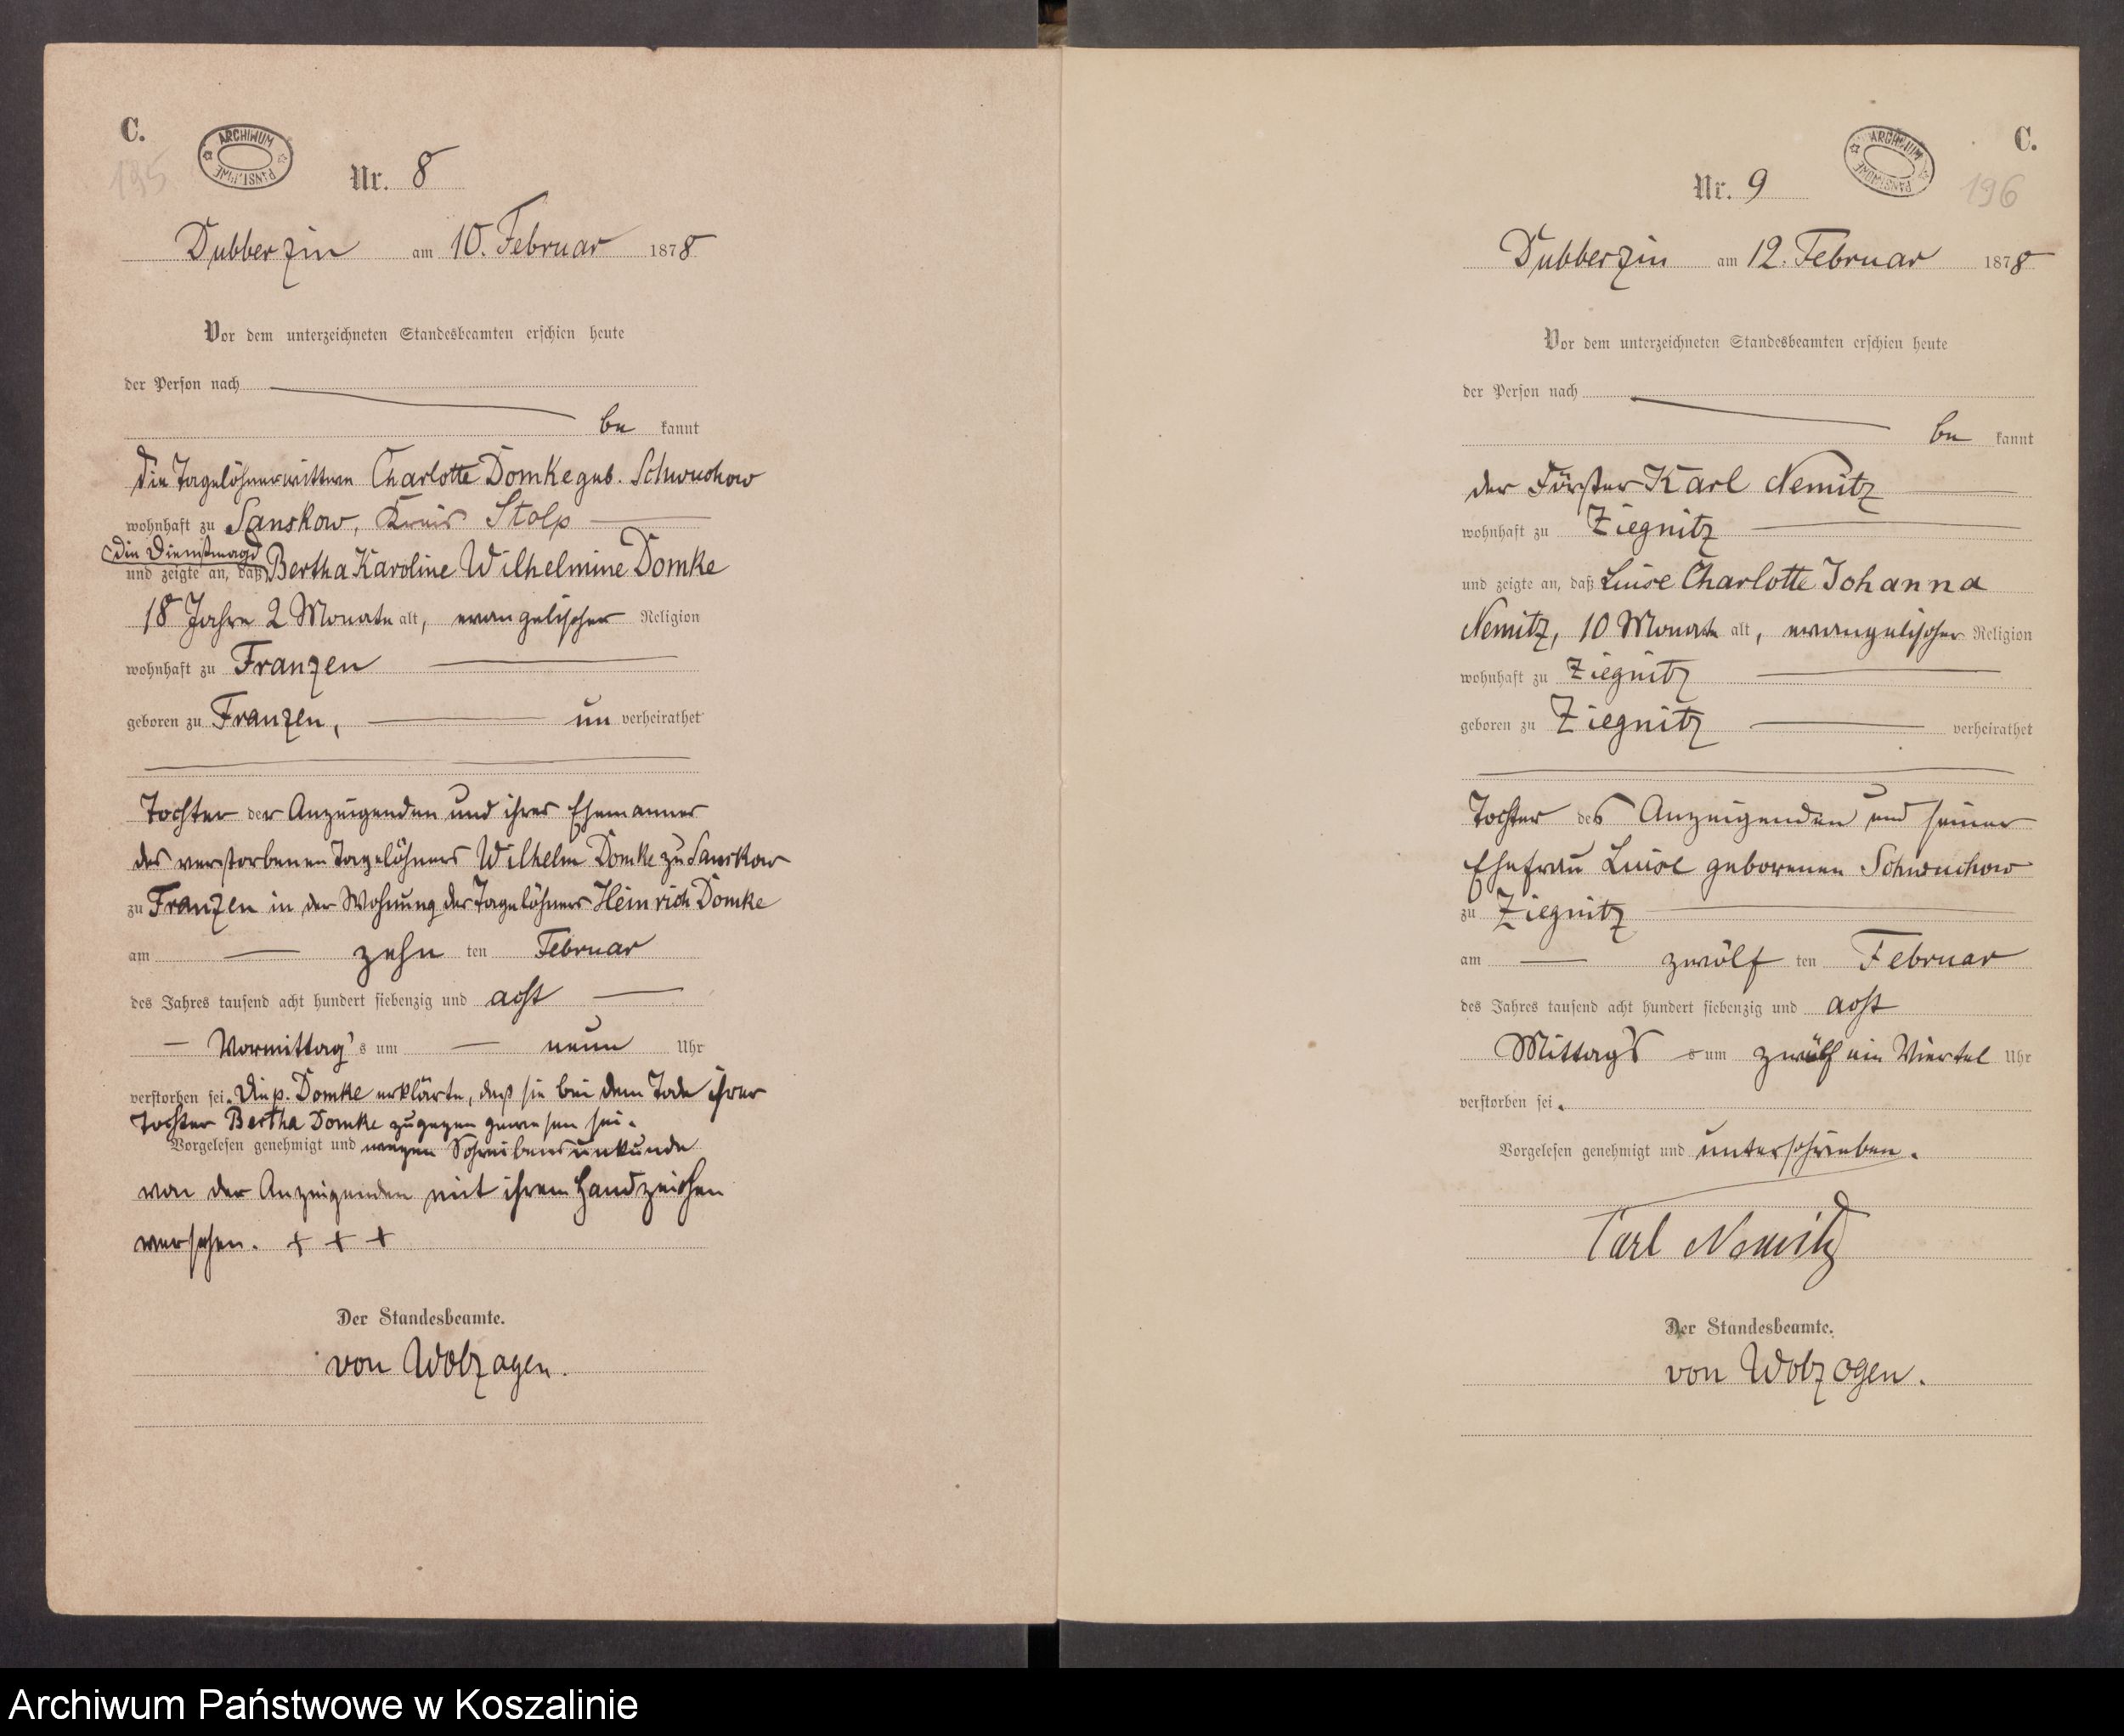 C.
ARCHIWUM PAŃSTWOWE
195
Nr. 8
Dubberzin am 10. Februar 1878
Vor dem unterzeichneten Standesbeamten erschien heute
der Person nach
be kannt
die Tagelöhnerwittwe Charlotte Domke geb. Schwuchow
wohnhaft zu Sanskow, Kreis Stolp
die Dienstmagd
und zeigte an, daß Bertha Karoline Wilhelmine Domke
18 Jahre 2 Monate alt, evangelischer Religion
wohnhaft zu Franzen
geboren zu Franzen, un verheirathet
Tochter der Anzeigenden und ihres Ehemannes
des verstorbenen Tagelöhners Wilhelm Domke zu Sanskow
zu Franzen in der Wohnung des Tagelöhners Heinrich Domke
am zehn ten Februar
des Jahres tausend acht hundert siebenzig und acht
Vormittag's um neun Uhr
verstorben sei. Die p. Domke erklärte, daß sie bei dem Tode ihrer
Tochter Bertha Domke zugegen gewesen sei.
Vorgelesen genehmigt und wegen Schreibensunkunde
von der Anzeigenden mit ihrem Handzeichen
versehen. + + +
Der Standesbeamte.
von Wolzogen.
C.
ARCHIWUM PAŃSTWOWE
196
Nr. 9
Dubberzin am 12. Februar 1878
Vor dem unterzeichneten Standesbeamten erschien heute
der Person nach
be kannt
der Förster Karl Nemitz
wohnhaft zu Ziegnitz
und zeigte an, daß Luise Charlotte Johanna
Nemitz, 10 Monate alt, evangelischer Religion
wohnhaft zu Ziegnitz
geboren zu Ziegnitz verheirathet
Tochter des Anzeigenden und seiner
Ehefrau Luise geborenen Schwuchow
zu Ziegnitz
am zwölf ten Februar
des Jahres tausend acht hundert siebenzig und acht
Mittags s um zwölf ein Viertel Uhr
verstorben sei.
Vorgelesen genehmigt und unterschrieben.
Carl Nemitz
Der Standesbeamte.
von Wolzogen.
Archiwum Państwowe w Koszalinie